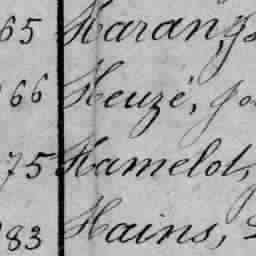 65 Harang, J
66 Heuzé, Jo
75 Hamelot,
83 Hains,